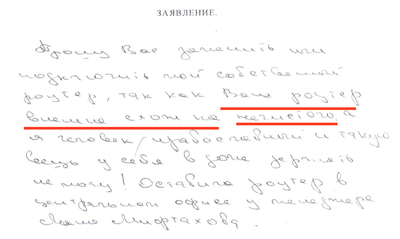 ЗАЯВЛЕНИЕ.
Прошу Вас заменить или
подключить мой собственный
роутер, так как Ваш роутер
внешне схож на нечистого, а
я человек православный и такую
вещь у себя в доме держать
не могу! Оставила роутер в
центральном офисе у менеджера
Мифтахова.